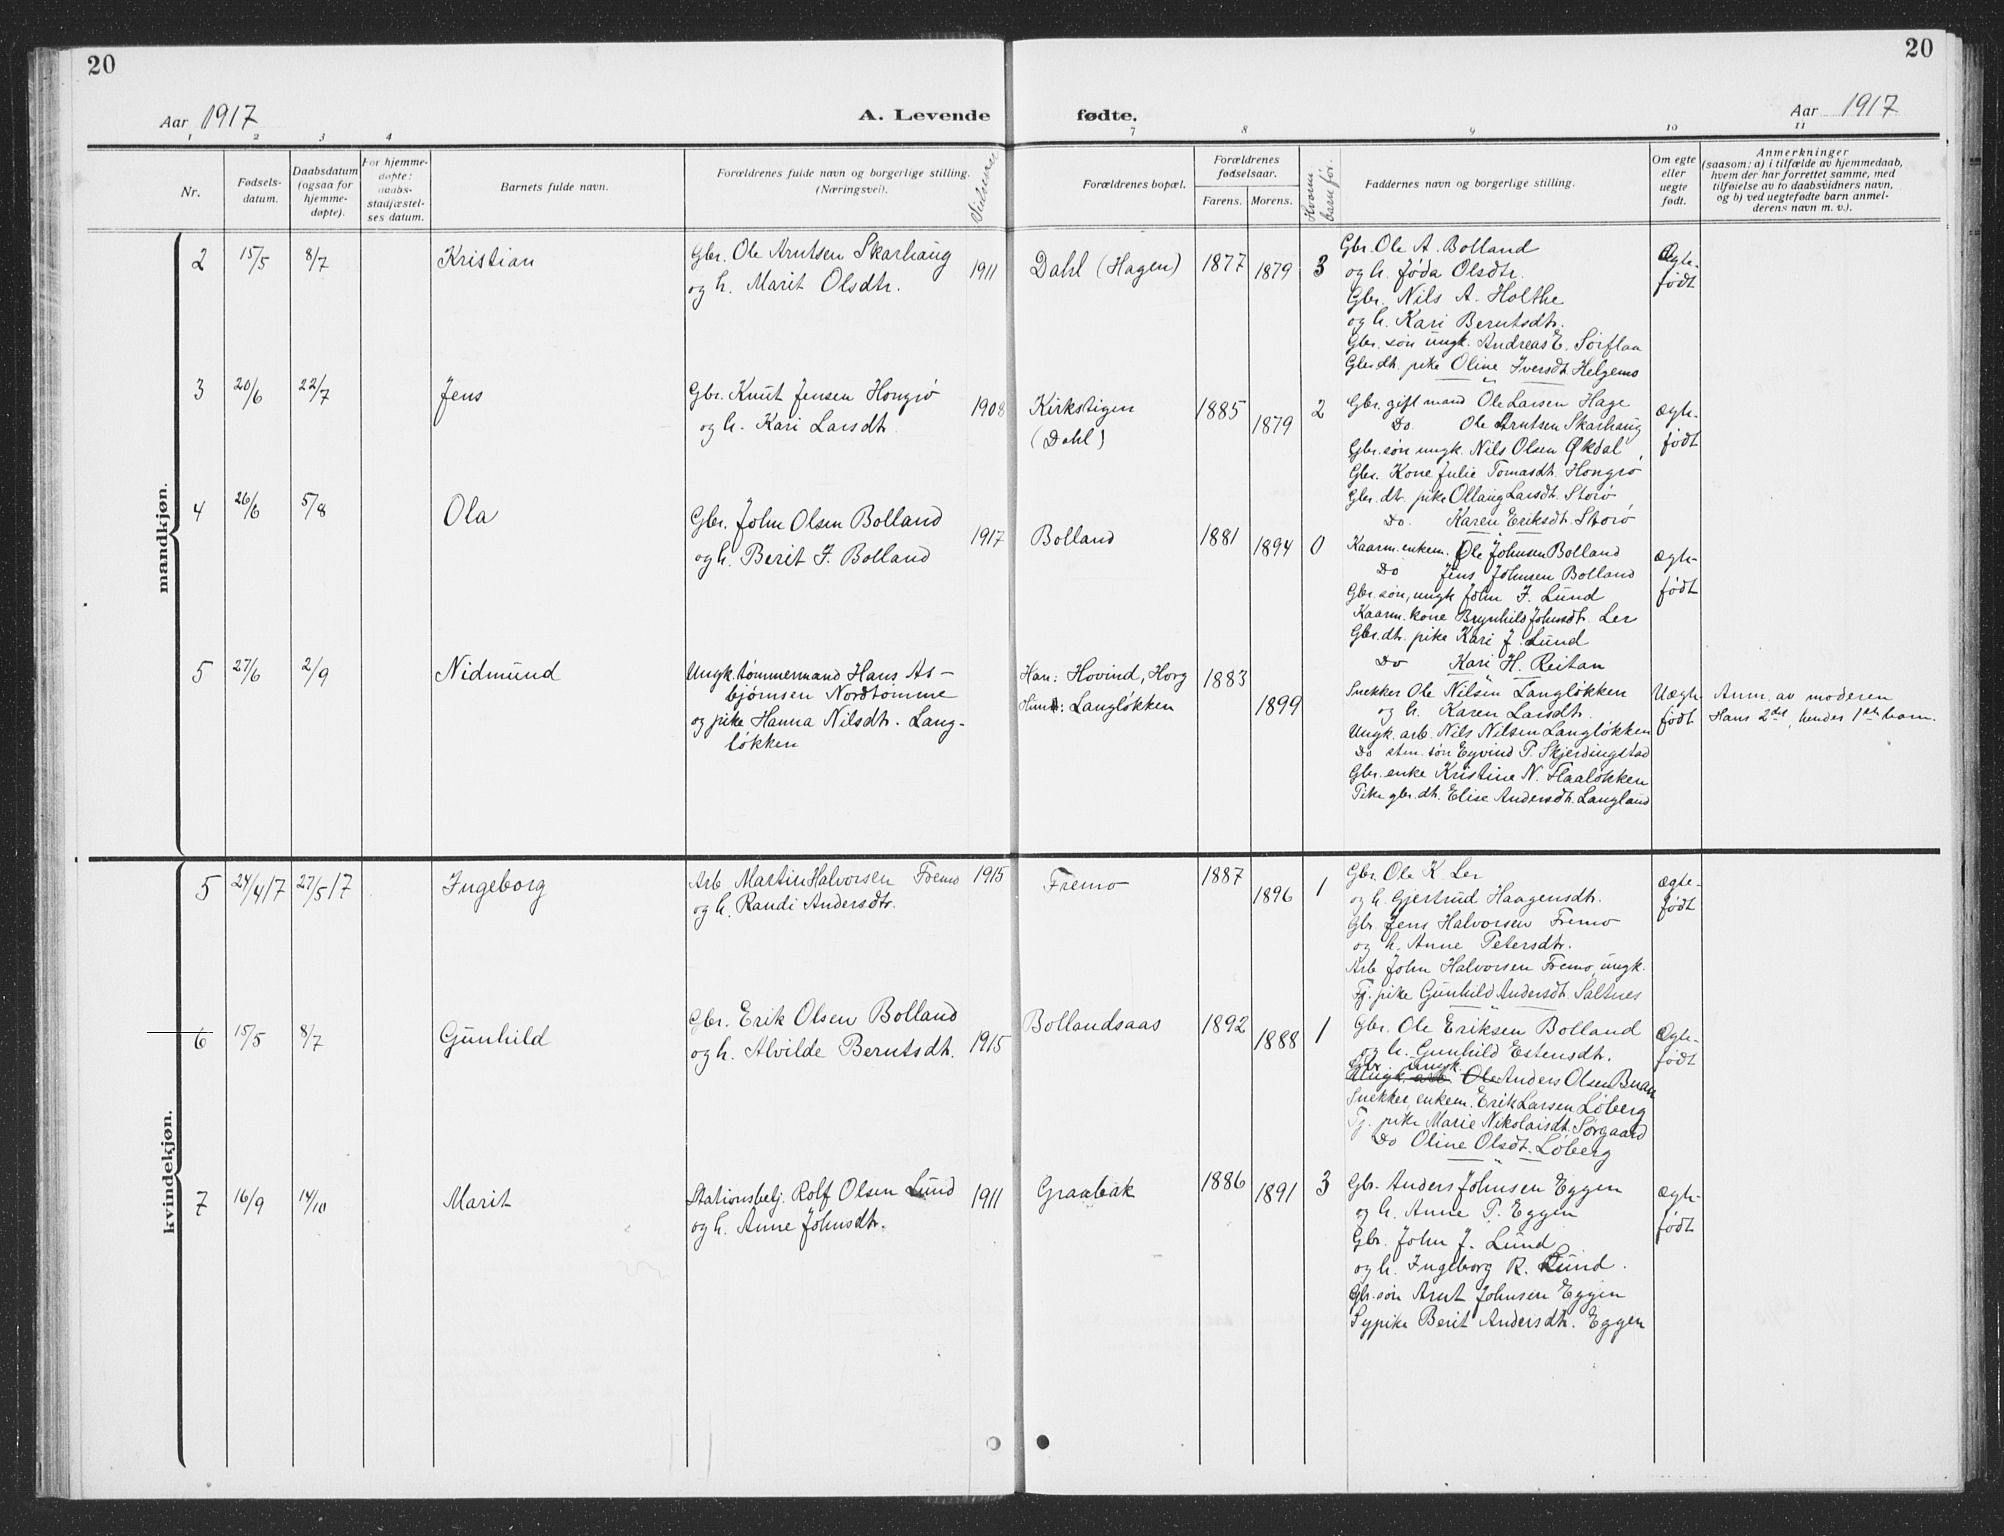 20
20
Aar 1917
A. Levende
fødte.
Aar 1917
1 2 3 4 7 8 9 10 11
Nr.
Fødsels-
datum.
Daabsdatum
(ogsaa for
hjemme-
døpte).
For hjemme-
døpte:
daabs-
stadfæstel-
ses datum.
Barnets fulde navn.
Forældrenes fulde navn og borgerlige stilling.
(Næringsvei).
Forældrenes bopæl.
Forældrenes
fødselsaar.
Farens. Morens.
Hvorm.
barn før.
Faddernes navn og borgerlige stilling.
Om egte
eller
uegte
født.
Anmerkninger
(saasom: a) i tilfælde av hjemmedaab,
hvem der har forrettet samme, med
tilføielse av to daabsvidners navn,
og b) ved uegtefødte barn anmel-
derens navn m. v.).
mandkjøn.
2 15/5 8/7 Kristian
Gbr. Ole Arntsen Skarhaug
og h. Marit Olsdtr.
1911
Dahl (Hagen)
1877 1879 3
Gbr. Ole A. Bolland
og h. Jøda Olsdtr.
Gbr. Nils A. Holthe
og h. Kari Berntsdtr.
Gbr. søn ungk. Andreas E. Sørflaa
Gbr. dt. pike Oline Iversdt. Helgemo
Ægte-
født
3 20/6 22/7 Jens
Gbr. Knut Jensen Hongrø
og h. Kari Larsdt.
1908
Kirkstigen
(Dahl)
1885 1879 2
Gbr. gift mand Ole Larsen Hage
Do. Ole Arntsen Skarhaug
Gbr. søn ungk. Nils Olsen Økdal
Gbr. Kone Julie Tomasdt. Hongrø
Gbr. dt. pike Ollaug Larsdt. Storø
Do. Karen Eriksdt. Storø
ægte-
født
4 26/6 5/8 Ola
Gbr. John Olsen Bolland
og h. Berit J. Bolland
1917
Bolland
1881 1894 0
Kaarm. enkem. Ole Johnsen Bolland
Do Jens Johnsen Bolland
Gbr. søn, ungk. John J. Lund
Kaarm. kone Brynhild Johnsdt. Ler
Gbr. dt. pike Kari J. Lund
Do Kari H. Reitan
ægte-
født
5 27/6 2/9 Nidmund
Ungk. tømmermand Hans As-
bjørnsen Nordtømme
og pike Hanna Nilsdt. Lang-
løkken
Han: Hovind, Horg
Hun: Langløkken
1883 1899
Snekker Ole Nilsen Langløkken
og h. Karen Larsdt.
Ungk. arb. Nils Nilsen Langløkken
Do sten. søn Eyvind P. Skjerdingstad
Gbr. enke Kristine N. Flaaløkken
Pike gbr. dt. Elise Andersdt. Langland
Uægte
født
Anm. av moderen
Hans 2det, hendes 1ste barn.
kvindekjøn.
5 24/4 17 27/5 17 Ingeborg
Arb Martin Halvorsen Fremo
og h. Randi Andersdtr.
1915
Fremo
1887 1896 1
Gbr. Ole K. Ler
og h. Gjertrud Haagensdt.
Gbr. Jens Halvorsen Fremo
og h. Anne Petersdtr.
Arb John Halvorsen Fremo, ungk.
Tj. pike Gunhild Andersdt. Saltnes
ægte-
født
6 15/5 8/7 Gunhild
Gbr. Erik Olsen Bolland
og h. Alvilde Berntsdt.
1915
Bollandsaas
1892 1888 1
Gbr. Ole Eriksen Bolland
og h. Gunhild Estensdtr.
Gbr ungk.
Ungk. arb Ole Anders Olsen Buan
Snekker, enkem. Erik Larsen Løberg
Tj. pike Marie Nikolaisdt. Sørgaard
Do Oline Olsdt. Løberg
Ægte-
født
7 16/9 14/10 Marit
Stationsbetj. Rolf Olsen Lund
og h. Anne Johnsdtr.
1911
Graabak
1886 1891 3
Gbr. Anders Johnsen Eggen
og h. Anne P. Eggen
Gbr. John J. Lund
og h. Ingeborg R. Lund.
Gbr. søn Arnt Johnsen Eggen
Sypike Berit Andersdt. Eggen
ægte-
født